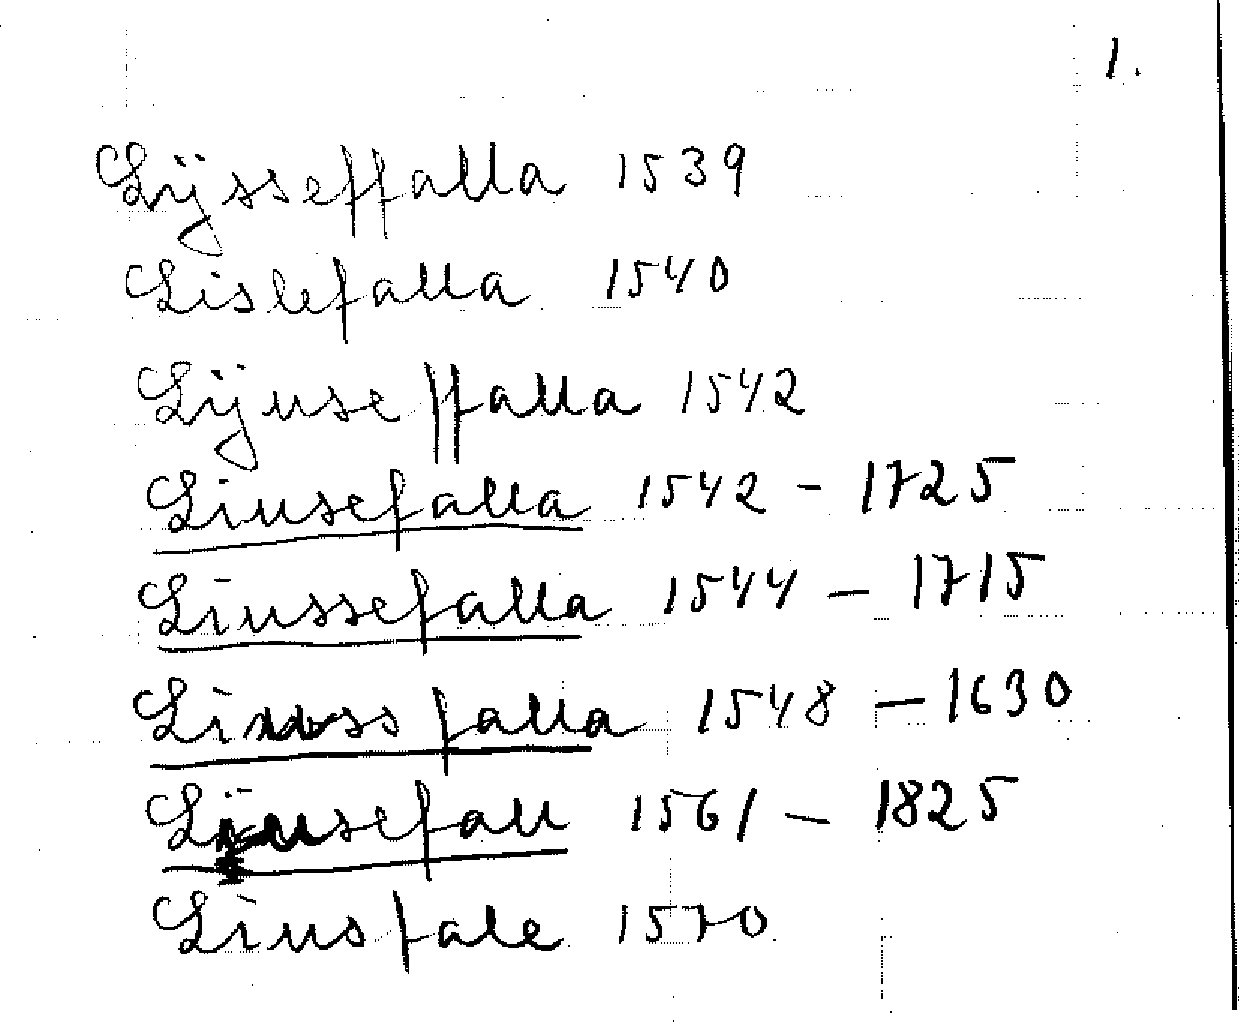 1.
Lÿsseffalla 1539
Lislefalla 1540
Lÿuseffalla 1542
Liusefalla 1542 - 1725
Liussefalla 1544 - 1715
falla 1548 - 1630
Liusefall 1561 - 1825
Liusfale 1570